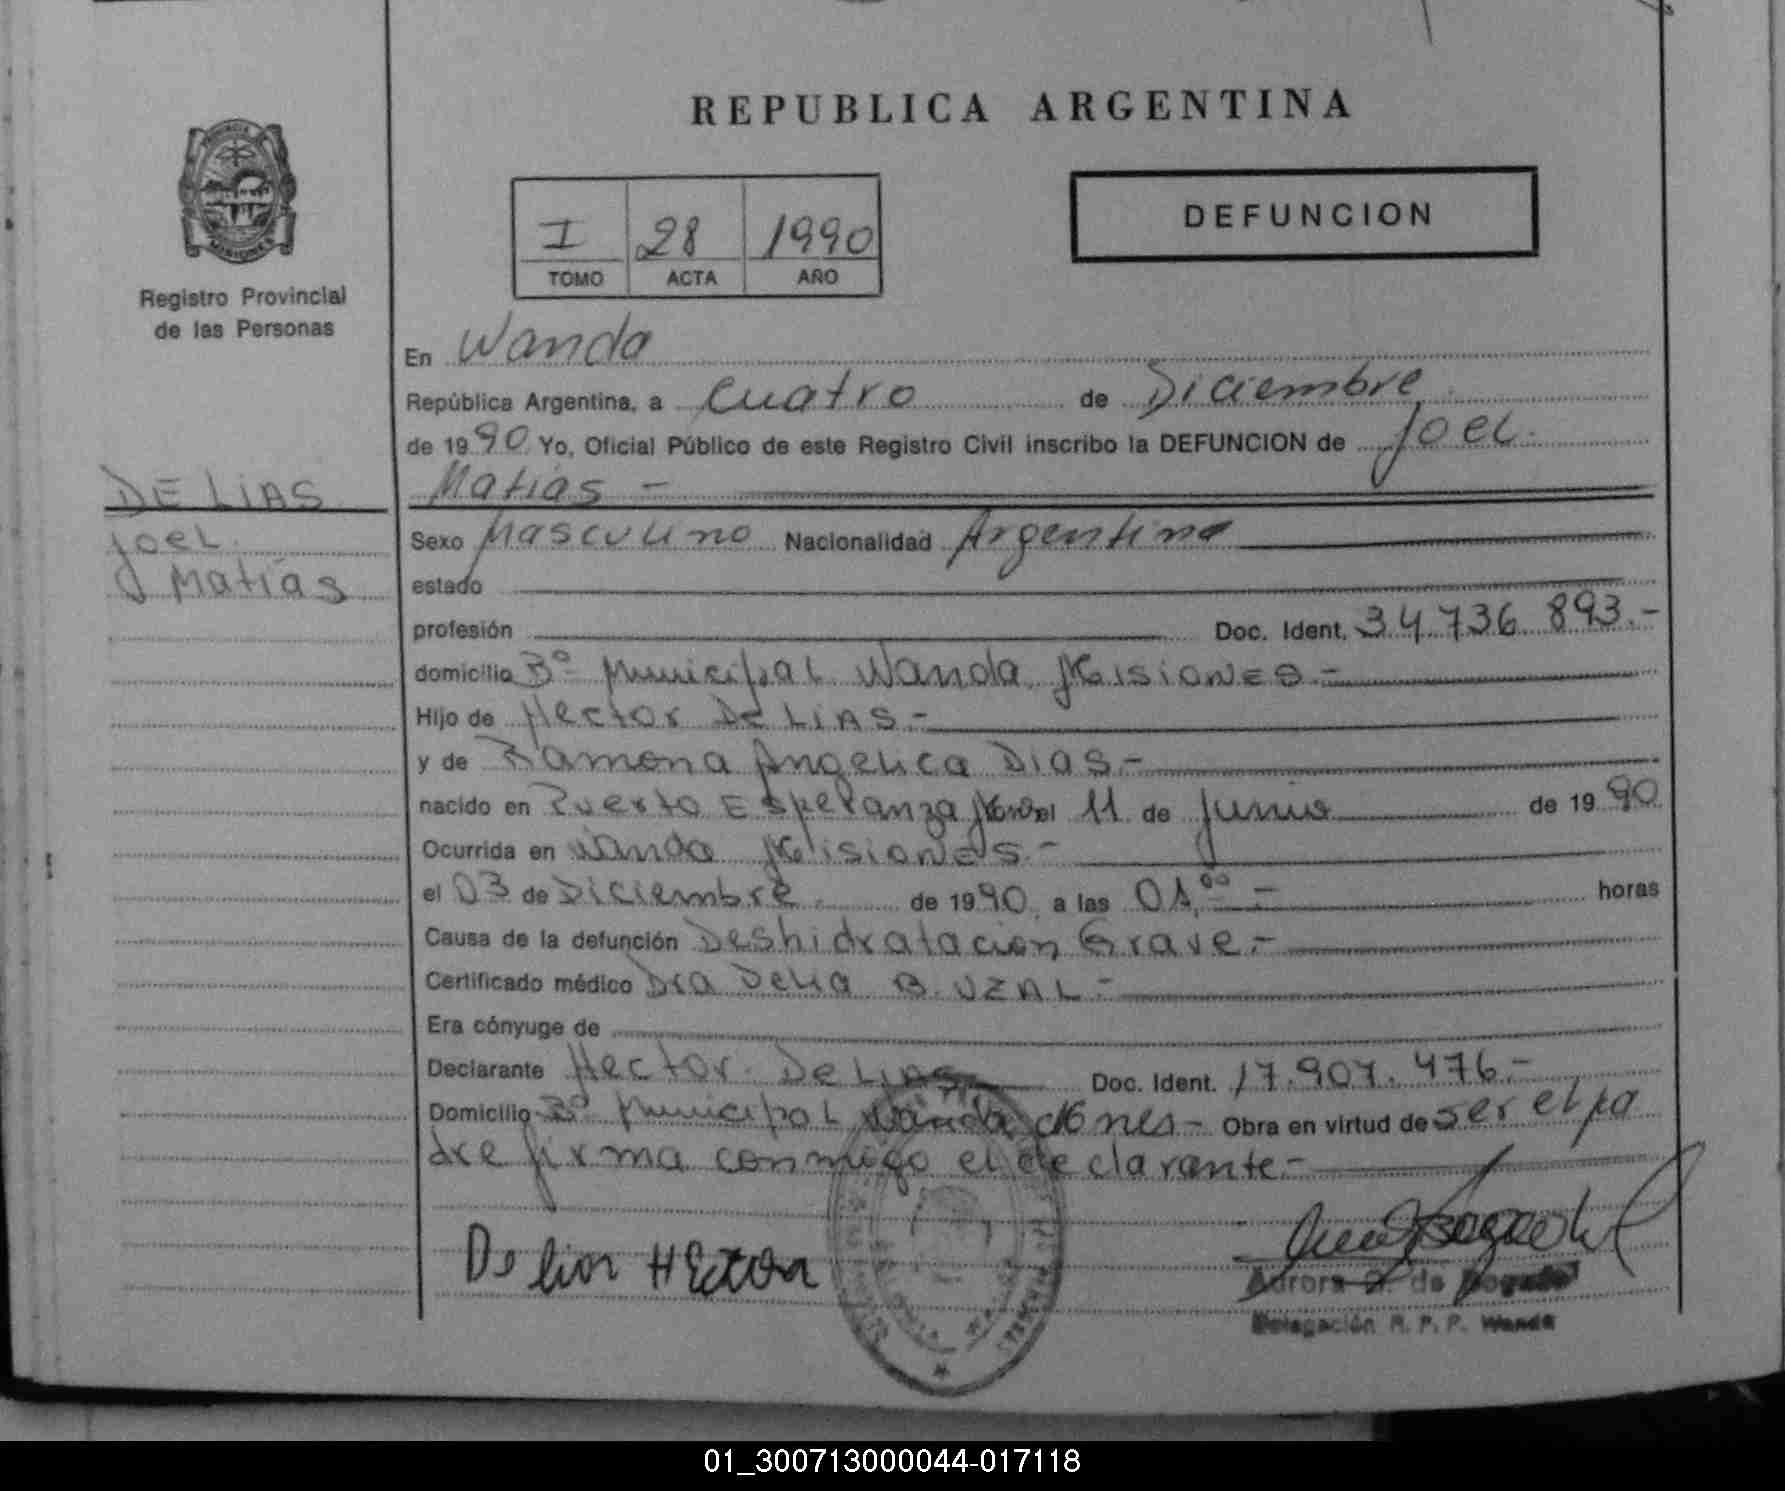 REPUBLICA ARGENTINA
PROVINCIA
MISIONES
Registro Provincial
de las Personas
I 28 1990
TOMO ACTA AÑO
DEFUNCION
En Wanda
República Argentina, a cuatro de Diciembre
de 1990 Yo, Oficial Público de este Registro Civil inscribo la DEFUNCION de Joel
Matías -
DE LIAS
Joel
Matías
Sexo Masculino Nacionalidad Argentina
estado
profesión Doc. Ident. 34.736.893.-
domicilio Bº Municipal Wanda Misiones.-
Hijo de Hector De LIAS.-
y de Ramona Angelica Dias.-
nacido en Puerto Esperanza el 11 de Junio de 1990
Ocurrida en Wanda Misiones.-
el 03 de Diciembre de 1990 a las 01,00.- horas
Causa de la defunción Deshidratacion Grave.-
Certificado médico Dra Delia B. UZAL.-
Era cónyuge de
Declarante Hector De LIAS Doc. Ident. 17.907.476.-
Domicilio Bº Municipal Wanda Mnes.- Obra en virtud de ser el pa
dre firma conmigo el declarante.-
De lias HEctor
Aurora de Bogado
Delegación R. P. P. Wanda
01_300713000044-017118